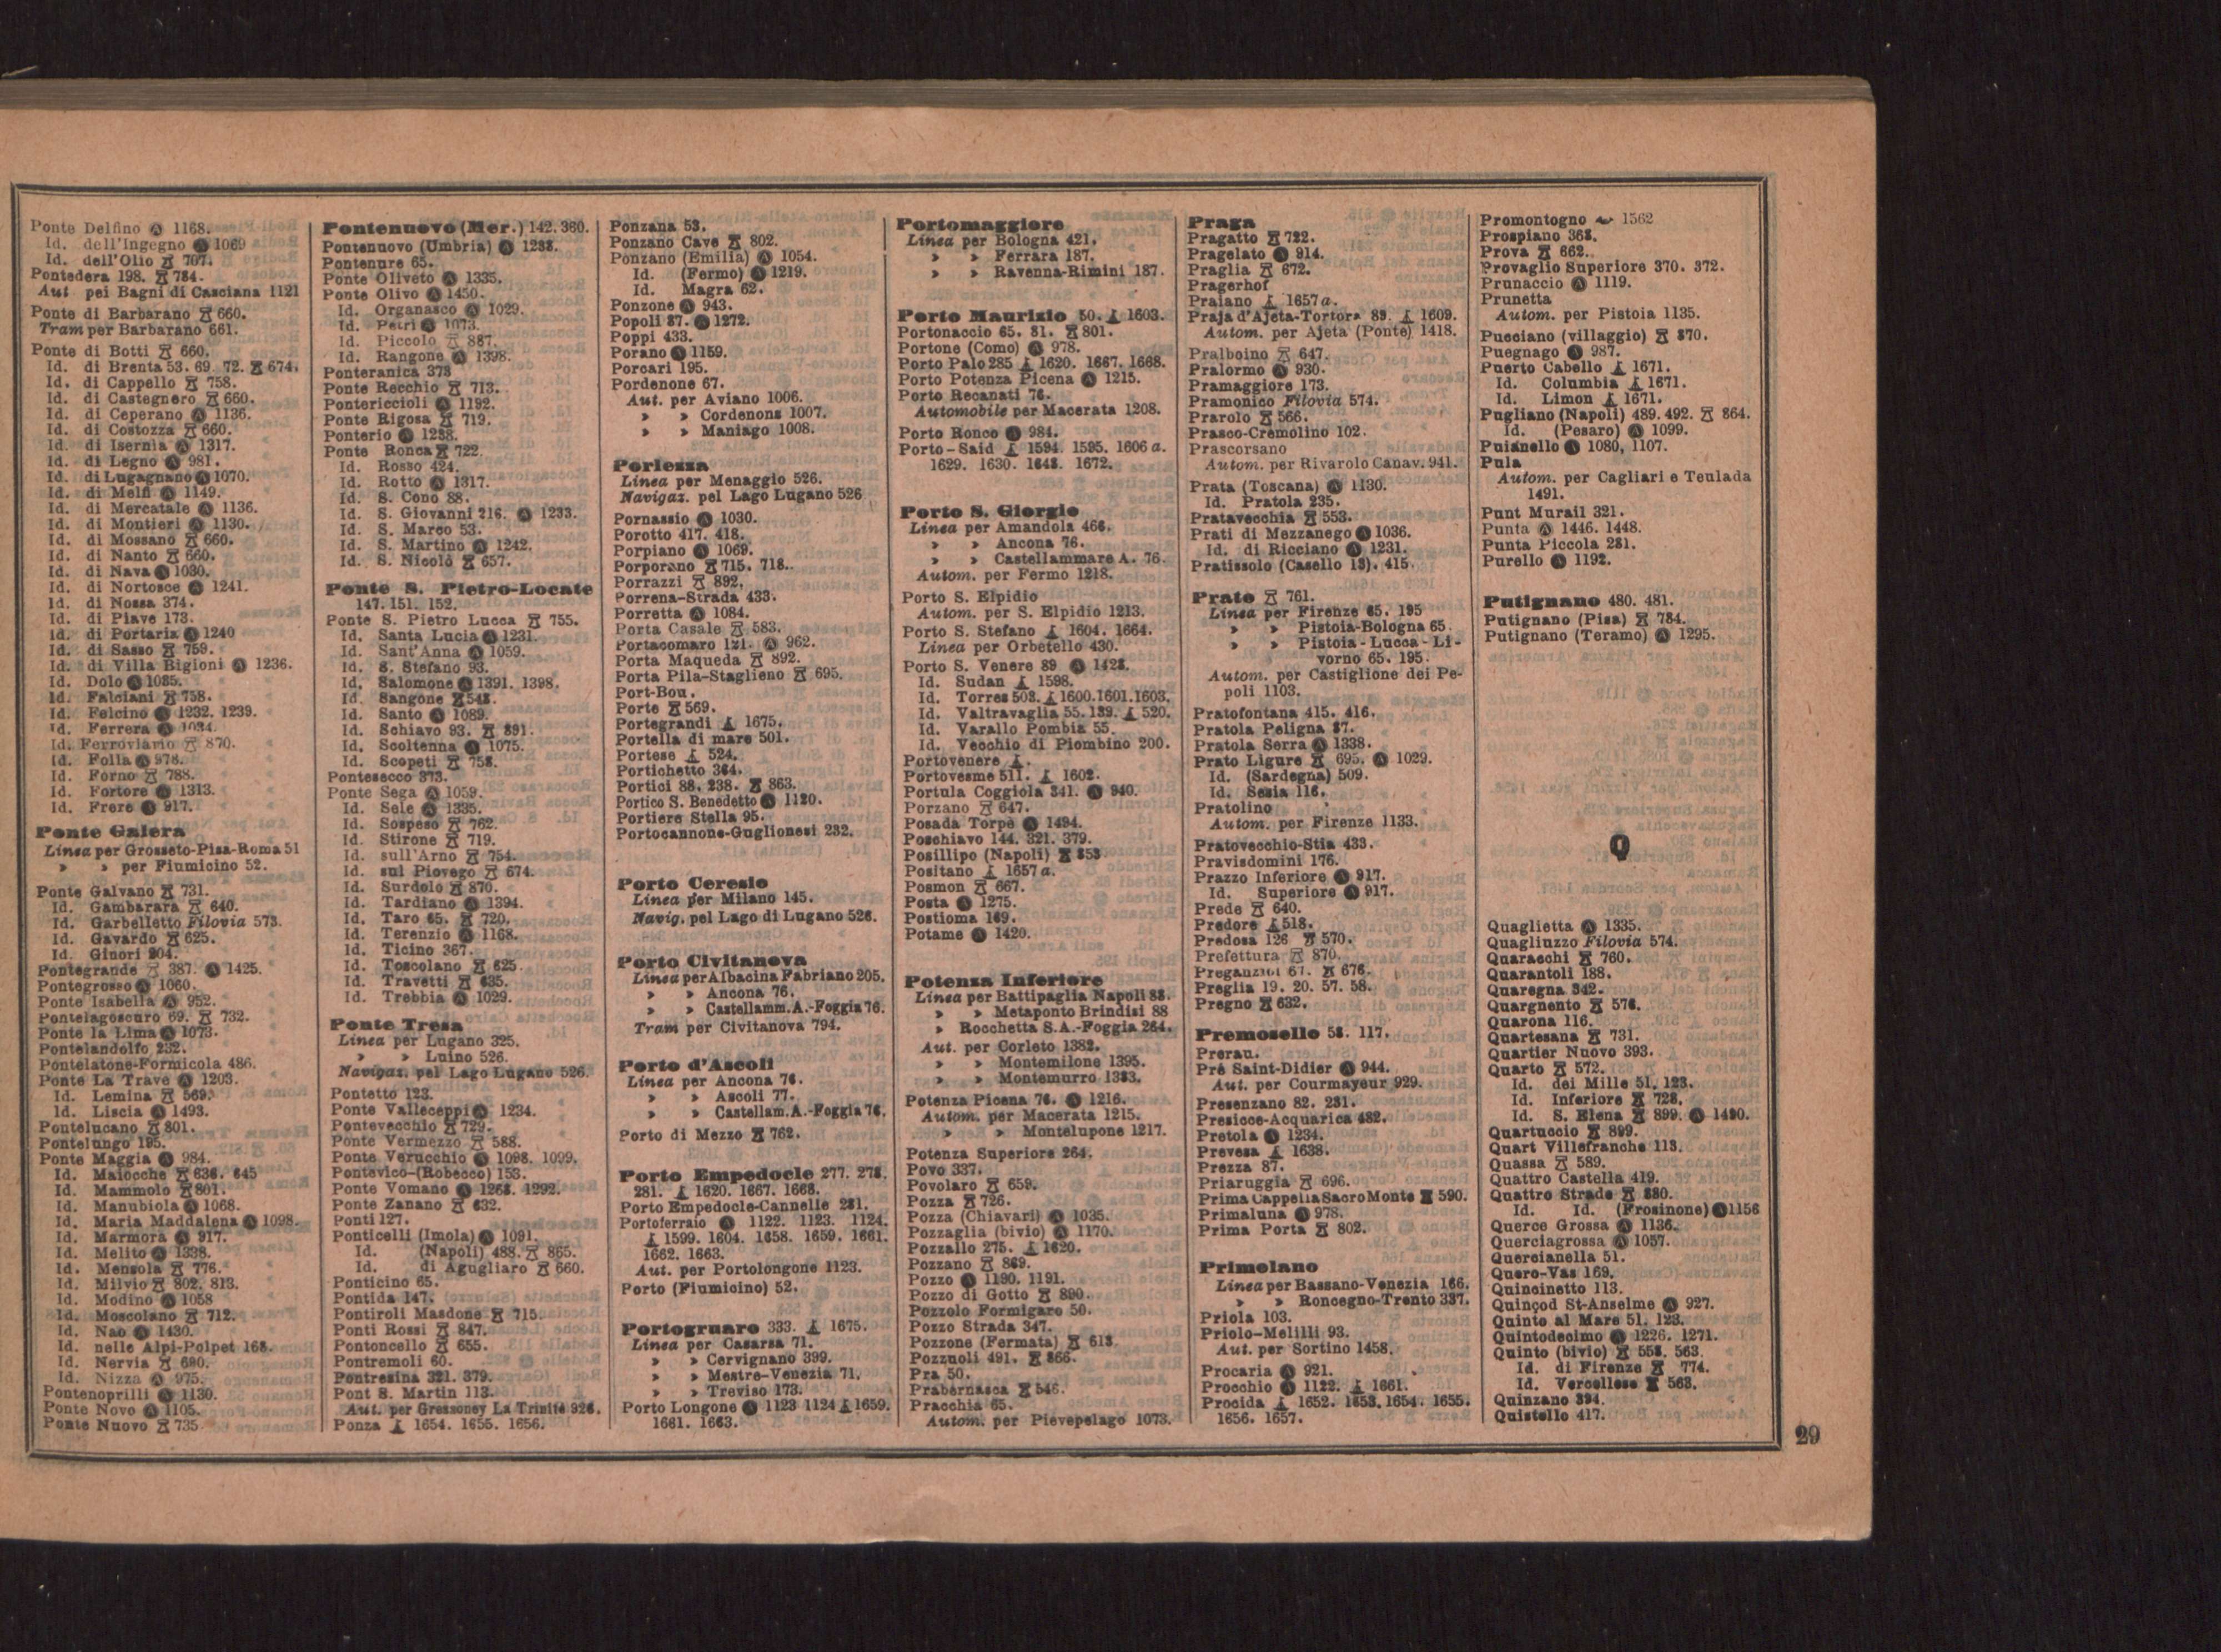 Ponte Delfino Ⓐ 1168.
Id. dell'Ingegno Ⓐ 1069
Id. dell'Olio 707.
Pontedera 198. 784.
Aut pei Bagni di Casciana 1121
Ponte di Barbarano 660.
Tram per Barbarano 661.
Ponte di Botti 660.
Id. di Brenta 53. 69. 72. 674.
Id. di Cappello 758.
Id. di Castegnero 660.
Id. di Ceperano Ⓐ 1136.
Id. di Costozza 660.
Id. di Isernia Ⓐ 1317.
Id. di Legno Ⓐ 981.
Id. di Lugagnano Ⓐ 1070.
Id. di Melfi Ⓐ 1149.
Id. di Mercatale Ⓐ 1136.
Id. di Montieri Ⓐ 1130.
Id. di Mossano 660.
Id. di Nanto 660.
Id. di Nava Ⓐ 1030.
Id. di Nortosce Ⓐ 1241.
Id. di Nossa 374.
Id. di Piave 173.
Id. di Portaria Ⓐ 1240
Id. di Sasso 759.
Id. di Villa Bigioni Ⓐ 1236.
Id. Dolo Ⓐ 1085.
Id. Falciani 758.
Id. Felcino Ⓐ 1232. 1239.
Id. Ferrera Ⓐ 1034.
Id. Ferroviario 870.
Id. Folla Ⓐ 978.
Id. Forno 788.
Id. Fortore Ⓐ 1313.
Id. Frere Ⓐ 917.
Ponte Galera
Linea per Grosseto-Pisa-Roma 51
» » per Fiumicino 52.
Ponte Galvano 731.
Id. Gambarara 640.
Id. Garbelletto Filovia 573.
Id. Gavardo 625.
Id. Ginori 204.
Pontegrande 387. Ⓐ 1425.
Pontegrosso Ⓐ 1060.
Ponte Isabella Ⓐ 952.
Pontelagoscuro 69. 732.
Ponte la Lima Ⓐ 1073.
Pontelandolfo 232.
Pontelatone-Formicola 486.
Ponte La Trave Ⓐ 1203.
Id. Lemina 569.
Id. Liscia Ⓐ 1493.
Pontelucano 801.
Pontelungo 195.
Ponte Maggia Ⓐ 984.
Id. Maiocche 636. 645
Id. Mammolo 801.
Id. Manubiola Ⓐ 1068.
Id. Maria Maddalena Ⓐ 1098.
Id. Marmora Ⓐ 917.
Id. Melito Ⓐ 1338.
Id. Mensola 776.
Id. Milvio 802. 813.
Id. Modino Ⓐ 1058
Id. Moscolano 712.
Id. Nao Ⓐ 1430.
Id. nelle Alpi-Polpet 168.
Id. Nervia 690.
Id. Nizza Ⓐ 975.
Pontenoprilli Ⓐ 1130.
Ponte Novo Ⓐ 1105.
Ponte Nuovo 735
Pontenuovo (Mer.) 142. 360.
Pontenuovo (Umbria) Ⓐ 1238.
Pontenure 65.
Ponte Oliveto Ⓐ 1335.
Ponte Olivo Ⓐ 1450.
Id. Organasco Ⓐ 1029.
Id. Petri Ⓐ 1073.
Id. Piccolo 887.
Id. Rangone Ⓐ 1398.
Ponteranica 373
Ponte Recchio 713.
Pontericcioli Ⓐ 1192.
Ponte Rigosa 719.
Ponterio Ⓐ 1238.
Ponte Ronca 722.
Id. Rosso 424.
Id. Rotto Ⓐ 1317.
Id. S. Cono 88.
Id. S. Giovanni 216. Ⓐ 1233.
Id. S. Marco 53.
Id. S. Martino Ⓐ 1242.
Id. S. Nicolò 657.
Ponte S. Pietro-Locate
147. 151. 152.
Ponte S. Pietro Lucca 755.
Id. Santa Lucia Ⓐ 1231.
Id. Sant'Anna Ⓐ 1059.
Id. S. Stefano 93.
Id. Salomone Ⓐ 1391. 1398.
Id. Sangone 548.
Id. Santo Ⓐ 1089.
Id. Schiavo 93. 891.
Id. Scoltenna Ⓐ 1075.
Id. Scopeti 758.
Pontesecco 373.
Ponte Sega Ⓐ 1059.
Id. Sele Ⓐ 1335.
Id. Sospeso 762.
Id. Stirone 719.
Id. sull'Arno 754.
Id. sul Piovego 674.
Id. Surdolo 870.
Id. Tardiano Ⓐ 1394.
Id. Taro 65. 720.
Id. Terenzio Ⓐ 1168.
Id. Ticino 367.
Id. Toscolano 625.
Id. Travetti 635.
Id. Trebbia Ⓐ 1029.
Ponte Tresa
Linea per Lugano 325.
» » Luino 526.
Navigaz. pel Lago Lugano 526.
Pontetto 123.
Ponte Valleceppi Ⓐ 1234.
Pontevecchio 729.
Ponte Vermezzo 588.
Ponte Verucchio Ⓐ 1098. 1099.
Pontevico-(Robecco) 153.
Ponte Vomano Ⓐ 1268. 1292.
Ponte Zanano 632.
Ponti 127.
Ponticelli (Imola) Ⓐ 1091.
Id. (Napoli) 488. 865.
Id. di Agugliaro 660.
Ponticino 65.
Pontida 147.
Pontiroli Masdone 715.
Ponti Rossi 847.
Pontoncello 655.
Pontremoli 60.
Pontresina 321. 379.
Pont S. Martin 113.
Aut. per Gressoney La Trinité 926.
Ponza 1654. 1655. 1656.
Ponzana 53.
Ponzano Cave 802.
Ponzano (Emilia) Ⓐ 1054.
Id. (Fermo) Ⓐ 1219.
Id. Magra 62.
Ponzone Ⓐ 943.
Popoli 87. Ⓐ 1272.
Poppi 433.
Porano Ⓐ 1159.
Porcari 195.
Pordenone 67.
Aut. per Aviano 1006.
» » Cordenons 1007.
» » Maniago 1008.
Porlezza
Linea per Menaggio 526.
Navigaz. pel Lago Lugano 526
Pornassio Ⓐ 1030.
Porotto 417. 418.
Porpiano Ⓐ 1069.
Porporano 715. 718.
Porrazzi 892.
Porrena-Strada 433.
Porretta Ⓐ 1084.
Porta Casale 583.
Portacomaro 121. Ⓐ 962.
Porta Maqueda 892.
Porta Pila-Staglieno 695.
Port-Bou.
Porte 569.
Portegrandi 1675.
Portella di mare 501.
Portese 524.
Portichetto 364.
Portici 88. 238. 863.
Portico S. Benedetto Ⓐ 1120.
Portiere Stella 95.
Portocannone-Guglionesi 232.
Porto Ceresio
Linea per Milano 145.
Navig. pel Lago di Lugano 526.
Porto Civitanova
Linea per Albacina Fabriano 205.
» » Ancona 76.
» » Castellamm. A.-Foggia 76.
Tram per Civitanova 794.
Porto d'Ascoli
Linea per Ancona 76.
» » Ascoli 77.
» » Castellam. A.-Foggia 76.
Porto di Mezzo 762.
Porto Empedocle 277. 278.
281. 1620. 1667. 1668.
Porto Empedocle-Cannelle 281.
Portoferraio Ⓐ 1122. 1123. 1124.
1599. 1604. 1658. 1659. 1661.
1662. 1663.
Aut. per Portolongone 1123.
Porto (Fiumicino) 52.
Portogruaro 333. 1675.
Linea per Casarsa 71.
» » Cervignano 399.
» » Mestre-Venezia 71.
» » Treviso 173.
Porto Longone Ⓐ 1123 1124 1659.
1661. 1663.
Portomaggiore
Linea per Bologna 421.
» » Ferrara 187.
» » Ravenna-Rimini 187.
Porto Maurizio 50. 1603.
Portonaccio 65. 81. 801.
Portone (Como) Ⓐ 978.
Porto Palo 285 1620. 1667. 1668.
Porto Potenza Picena Ⓐ 1215.
Porto Recanati 76.
Automobile per Macerata 1208.
Porto Ronco Ⓐ 984.
Porto-Said 1594. 1595. 1606 a.
1629. 1630. 1648. 1672.
Porto S. Giorgio
Linea per Amandola 466.
» » Ancona 76.
» » Castellammare A. 76.
Autom. per Fermo 1218.
Porto S. Elpidio
Autom. per S. Elpidio 1213.
Porto S. Stefano 1604. 1664.
Linea per Orbetello 430.
Porto S. Venere 89 Ⓐ 1428.
Id. Sudan 1598.
Id. Torres 503. 1600. 1601. 1603.
Id. Valtravaglia 55. 139. 520.
Id. Varallo Pombia 55.
Id. Vecchio di Piombino 200.
Portovenere.
Portovesme 511. 1602.
Portula Coggiola 341. Ⓐ 940.
Porzano 647.
Posada Torpè Ⓐ 1494.
Poschiavo 144. 321. 379.
Posillipo (Napoli) 853
Positano 1657 a.
Posmon 667.
Posta Ⓐ 1275.
Postioma 169.
Potame Ⓐ 1420.
Potenza Inferiore
Linea per Battipaglia Napoli 88.
» » Metaponto Brindisi 88
» » Rocchetta S.A.-Foggia 264.
Aut. per Corleto 1382.
» » Montemilone 1395.
» » Montemurro 1383.
Potenza Picena 76. Ⓐ 1216.
Autom. per Macerata 1215.
» » Montelupone 1217.
Potenza Superiore 264.
Povo 337.
Povolaro 659.
Pozza 726.
Pozza (Chiavari) Ⓐ 1035.
Pozzaglia (bivio) Ⓐ 1170.
Pozzallo 275. 1620.
Pozzano 869.
Pozzo Ⓐ 1190. 1191.
Pozzo di Gotto 890.
Pozzolo Formigaro 50.
Pozzo Strada 347.
Pozzone (Fermata) 613.
Pozzuoli 491. 866.
Pra 50.
Prabernasca 546.
Pracchia 65.
Autom. per Pievepelago 1073.
Praga
Pragatto 722.
Pragelato Ⓐ 914.
Praglia 672.
Pragerhof
Praiano 1657 a.
Praja d'Ajeta-Tortora 89. 1609.
Autom. per Ajeta (Ponte) 1418.
Pralboino 647.
Pralormo Ⓐ 930.
Pramaggiore 173.
Pramonico Filovia 574.
Prarolo 566.
Prasco-Cremolino 102.
Prascorsano
Autom. per Rivarolo Canav. 941.
Prata (Toscana) Ⓐ 1130.
Id. Pratola 235.
Pratavecchia 553.
Prati di Mezzanego Ⓐ 1036.
Id. di Ricciano Ⓐ 1231.
Pratissolo (Casello 13). 415.
Prato 761.
Linea per Firenze 65. 195
» » Pistoia-Bologna 65.
» » Pistoia-Lucca-Li-
vorno 65. 195.
Autom. per Castiglione dei Pe-
poli 1103.
Pratofontana 415. 416.
Pratola Peligna 87.
Pratola Serra Ⓐ 1338.
Prato Ligure 695. Ⓐ 1029.
Id. (Sardegna) 509.
Id. Sesia 116.
Pratolino
Autom. per Firenze 1133.
Pratovecchio-Stia 433.
Pravisdomini 176.
Prazzo Inferiore Ⓐ 917.
Id. Superiore Ⓐ 917.
Prede 640.
Predore 518.
Predosa 126 570.
Prefettura 870.
Preganziol 67. 676.
Preglia 19. 20. 57. 58.
Pregno 632.
Premosello 58. 117.
Prerau.
Pré Saint-Didier Ⓐ 944.
Aut. per Courmayeur 929.
Presenzano 82. 231.
Presicce-Acquarica 482.
Pretola Ⓐ 1234.
Prevesa 1638.
Prezza 87.
Priaruggia 696.
Prima Cappella Sacro Monte 590.
Primaluna Ⓐ 978.
Prima Porta 802.
Primolano
Linea per Bassano-Venezia 166.
» » Roncegno-Trento 337.
Priola 103.
Priolo-Melilli 93.
Aut. per Sortino 1458.
Procaria Ⓐ 921.
Procchio Ⓐ 1122. 1661.
Procida 1652. 1653. 1654. 1655.
1656. 1657.
Promontogno 1562
Prospiano 368.
Prova 662.
Provaglio Superiore 370. 372.
Prunaccio Ⓐ 1119.
Prunetta
Autom. per Pistoia 1135.
Pucciano (villaggio) 870.
Puegnago Ⓐ 987.
Puerto Cabello 1671.
Id. Columbia 1671.
Id. Limon 1671.
Pugliano (Napoli) 489. 492. 864.
Id. (Pesaro) Ⓐ 1099.
Puianello Ⓐ 1080, 1107.
Pula
Autom. per Cagliari e Teulada
1491.
Punt Murail 321.
Punta Ⓐ 1446. 1448.
Punta Piccola 281.
Purello Ⓐ 1192.
Putignano 480. 481.
Putignano (Pisa) 784.
Putignano (Teramo) Ⓐ 1295.
Q
Quaglietta Ⓐ 1335.
Quagliuzzo Filovia 574.
Quaracchi 760.
Quarantoli 188.
Quaregna 342.
Quargnento 576.
Quarona 116.
Quartesana 731.
Quartier Nuovo 393.
Quarto 572.
Id. dei Mille 51. 123.
Id. Inferiore 728.
Id. S. Elena 899. Ⓐ 1490.
Quartuccio 899.
Quart Villefranche 113.
Quassa 589.
Quattro Castella 419.
Quattro Strade 880.
Id. Id. (Frosinone) Ⓐ 1156
Querce Grossa Ⓐ 1136.
Querciagrossa Ⓐ 1057.
Quercianella 51.
Quero-Vas 169.
Quincinetto 113.
Quinçod St-Anselme Ⓐ 927.
Quinto al Mare 51. 123.
Quintodecimo Ⓐ 1226. 1271.
Quinto (bivio) 558. 563.
Id. di Firenze 774.
Id. Vercellese 563.
Quinzano 394.
Quistello 417.
29